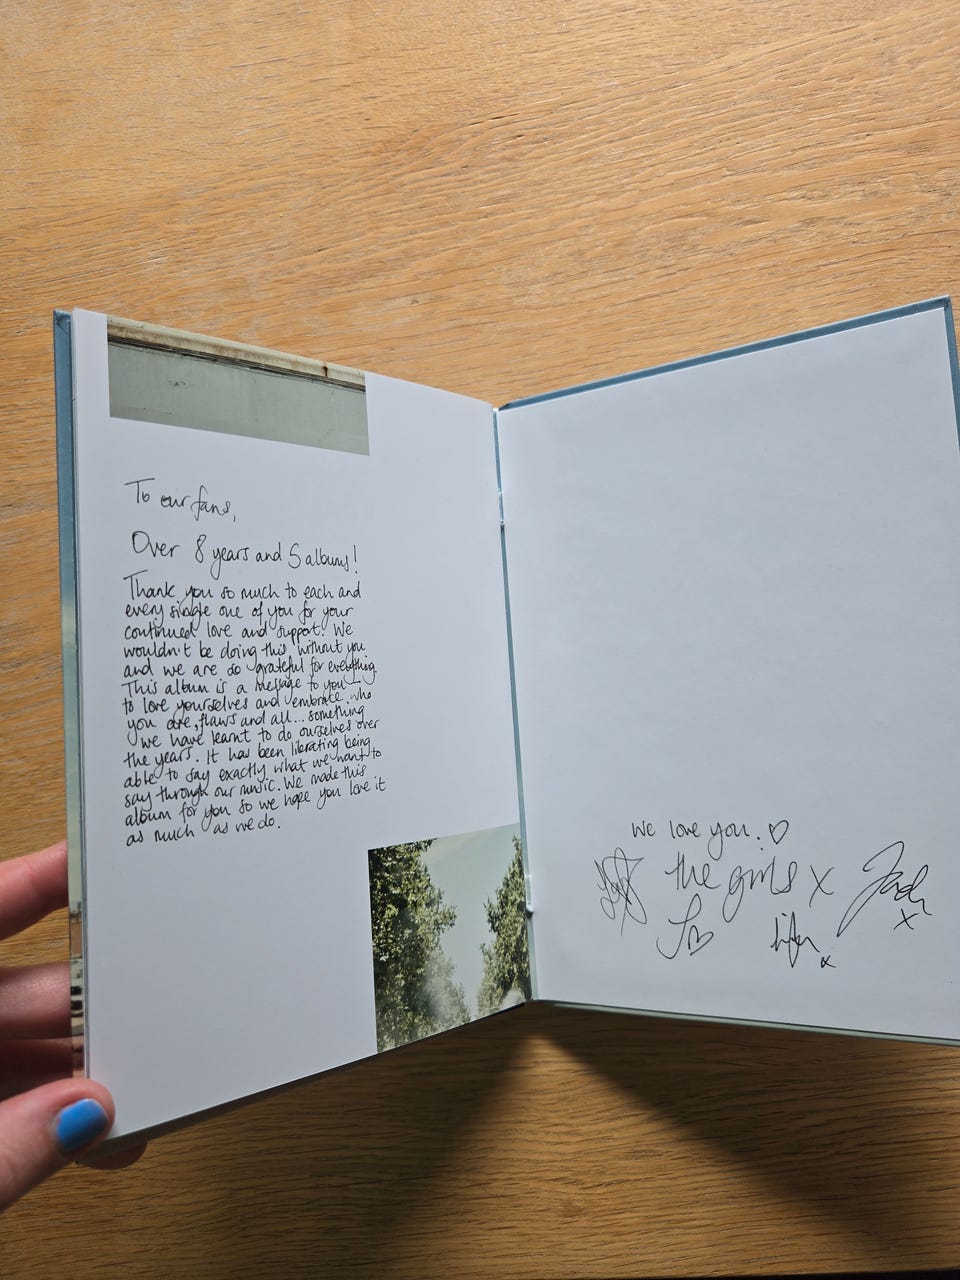 To our fans,
Over 8 years and 5 albums!
Thank you so much to each and
every single one of you for your
continued love and support. We
wouldn't be doing this without you
and we are so grateful for everything.
This album is a message to you -
to love yourselves and embrace who
you are, flaws and all... something
we have learnt to do ourselves over
the years. It has been liberating being
able to say exactly what we want to
say through our music. We made this
album for you so we hope you love it
as much as we do.
we love you. ♡
the girls x
Jade
x